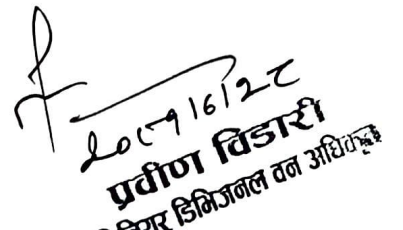 २०८१।६।२८
प्रवीण विडारी
डिभिजनल वन अधिकृत